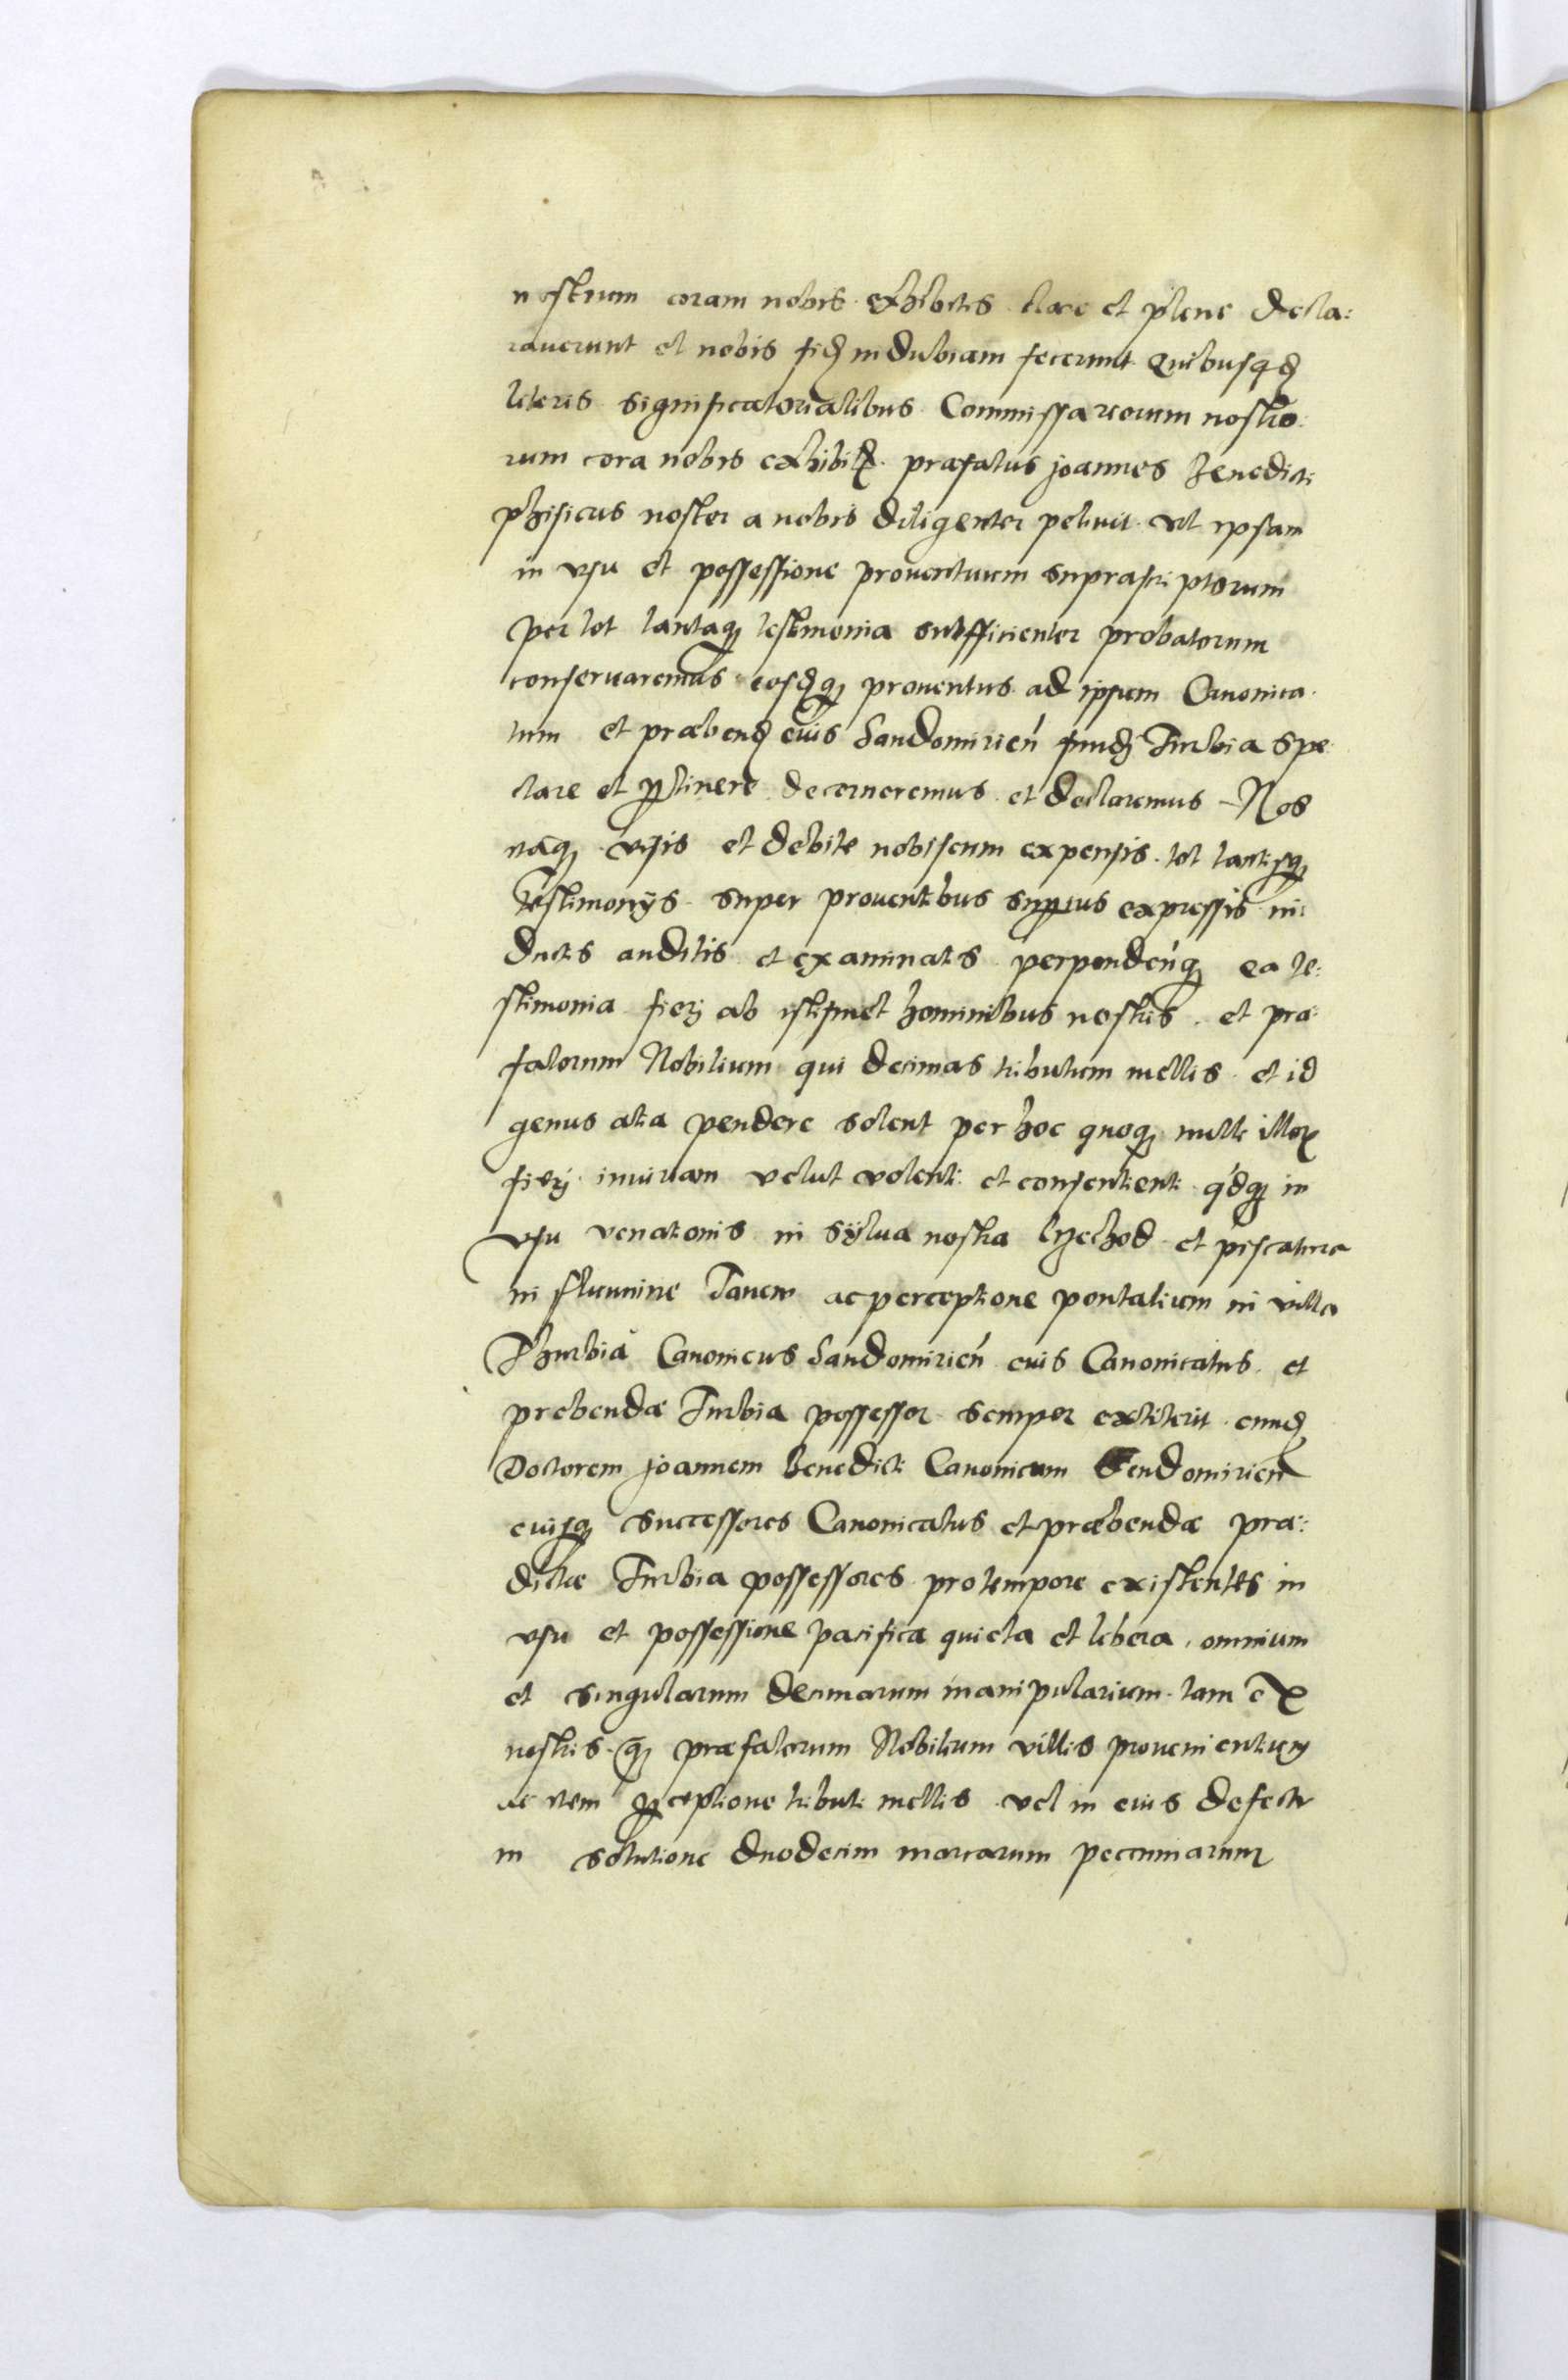 nostrum coram nobis exhibitis clare et plene decla:
raverunt et nobis fidẽ indubiam fecerunt Quibusqdẽ
literis significatorialibus Commissariorum nostro:
rum corã nobis exhibitis præfatus Joannes Benedicti
phisicus noster a nobis diligenter petivit vt ipsum
in vsu et possessione proventuum suprascriptorum
per tot tantaq; testimonia sufficienter probatorum
conservaremus eosdẽq; proventus ad ipsum Canonica
tum et præbendã eius Sandomirień fundi Turbia spe
ctare et ꝑtinere decerneremus et declaremus Nos
itaq; visis et debite nobiscum expensis tot tantisq;
testimonijs super proventibus superius expressis in
ductis auditis et examinatis perpendeńq; ea te:
stimonia fieri ab istismet hominibus nostris et præ
fatorum Nobilium qui decimas tributum mellis et id
genus alia pendere solent per hoc quoq; nulli illorꝫ
fieri iniuriam velut volenti et consentienti q́dq; in
vsu venationis in sylva nostra et piscatura
in flumine Tanew ac perceptione pontalium in villa
Thurbia Canonicus Sandomirień eius Canonicatus et
prebendæ Turbia possessor semper extiterit eundẽ
Doctorem Joannem Benedicti Canonicum Sendomirień
eiusq; successores Canonicatus et præbendæ præ:
dictæ Turbia possessores pro tempore existentes in
vsu et possessione pacifica quieta et libera, omnium
et singularum decimarum manipularium tam ex
nostris q̃ præfatorum Nobilium villis provenientium
ac item ꝑceptione tributi mellis vel in eius defectu
in solutione duodecim marcarum pecuniarum